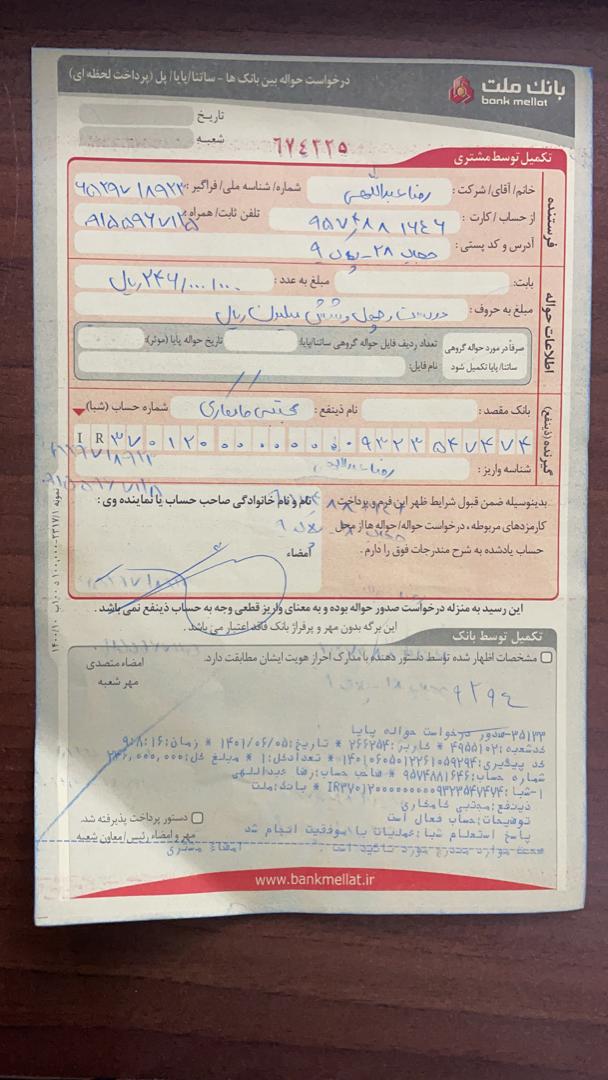 بانک ملت
bank mellat
درخواست حواله بین بانک ها - ساتنا/ پایا/ پل (پرداخت لحظه ای)
تاریخ :
شعبه :
۶۷۴۳۲۵
تکمیل توسط مشتری
فرستنده
خانم/ آقای/ شرکت : رضا عبداللهی شماره/ شناسه ملی/ فراگیر :
از حساب / کارت : ۹۵۷۴۸۸۱۶۴۶ تلفن ثابت/ همراه : ۹۱۵۵۹۶۷۱۲۵
آدرس و کد پستی : ۲۸ - پلاک ۹
اطلاعات حواله
بابت : مبلغ به عدد : ۲۴۶/۰۰۰/۰۰۰ ریال
مبلغ به حروف : دویست و چهل و شش میلیون ریال
صرفاً در مورد حواله گروهی ساتنا/ پایا تکمیل شود
تعداد ردیف فایل حواله گروهی ساتنا/پایا: تاریخ حواله پایا (موثر):
نام فایل:
گیرنده (ذینفع)
بانک مقصد : نام ذینفع : مجتبی کامکاری شماره حساب (شبا) :
IR ۳۷۰۱۲۰۰۰۰۰۰۰۰۰۹۳۲۳۵۴۷۴۷۴
شناسه واریز : رضا عبداللهی
بدینوسیله ضمن قبول شرایط ظهر این فرم و پرداخت
کارمزدهای مربوطه، درخواست حواله/ حواله ها از محل
حساب یادشده به شرح مندرجات فوق را دارم .
نام و نام خانوادگی صاحب حساب یا نماینده وی :
امضاء
این رسید به منزله درخواست صدور حواله بوده و به معنای واریز قطعی وجه به حساب ذینفع نمی باشد .
این برگه بدون مهر و پرفراژ بانک فاقد اعتبار می باشد .
تکمیل توسط بانک
مشخصات اظهار شده توسط دستور دهنده با مدارک احراز هویت ایشان مطابقت دارد.
امضاء متصدی
مهر شعبه
۳۵۱۳۳-صدور درخواست حواله پایا
کدشعبه:۴۹۵۵۱۰۲ * کاربر:۲۶۶۲۵۴ * تاریخ:۱۴۰۱/۰۶/۰۵ * زمان:۹:۰۸:۱۶
کد پیگیری:۱۴۰۱۰۶۰۵۰۱۲۲۶۱۰۵۹۲۹۴ * تعدادکل:۱ * مبلغ کل:۲۴۶,۰۰۰,۰۰۰
شماره حساب:۹۵۷۴۸۸۱۶۴۶ * صاحب حساب:رضا عبداللهی
۱-شبا:IR۳۷۰۱۲۰۰۰۰۰۰۰۰۰۹۳۲۳۵۴۷۴۷۴ * بانک:ملت
ذینفع:مجتبی کامکاری
توضیحات:حساب فعال است
پاسخ استعلام شبا:عملیات با موفقیت انجام شد
صحت موارد مندرج مورد تائید است . امضاء مشتری
دستور پرداخت پذیرفته شد.
مهر و امضاء رئیس/ معاون شعبه
www.bankmellat.ir